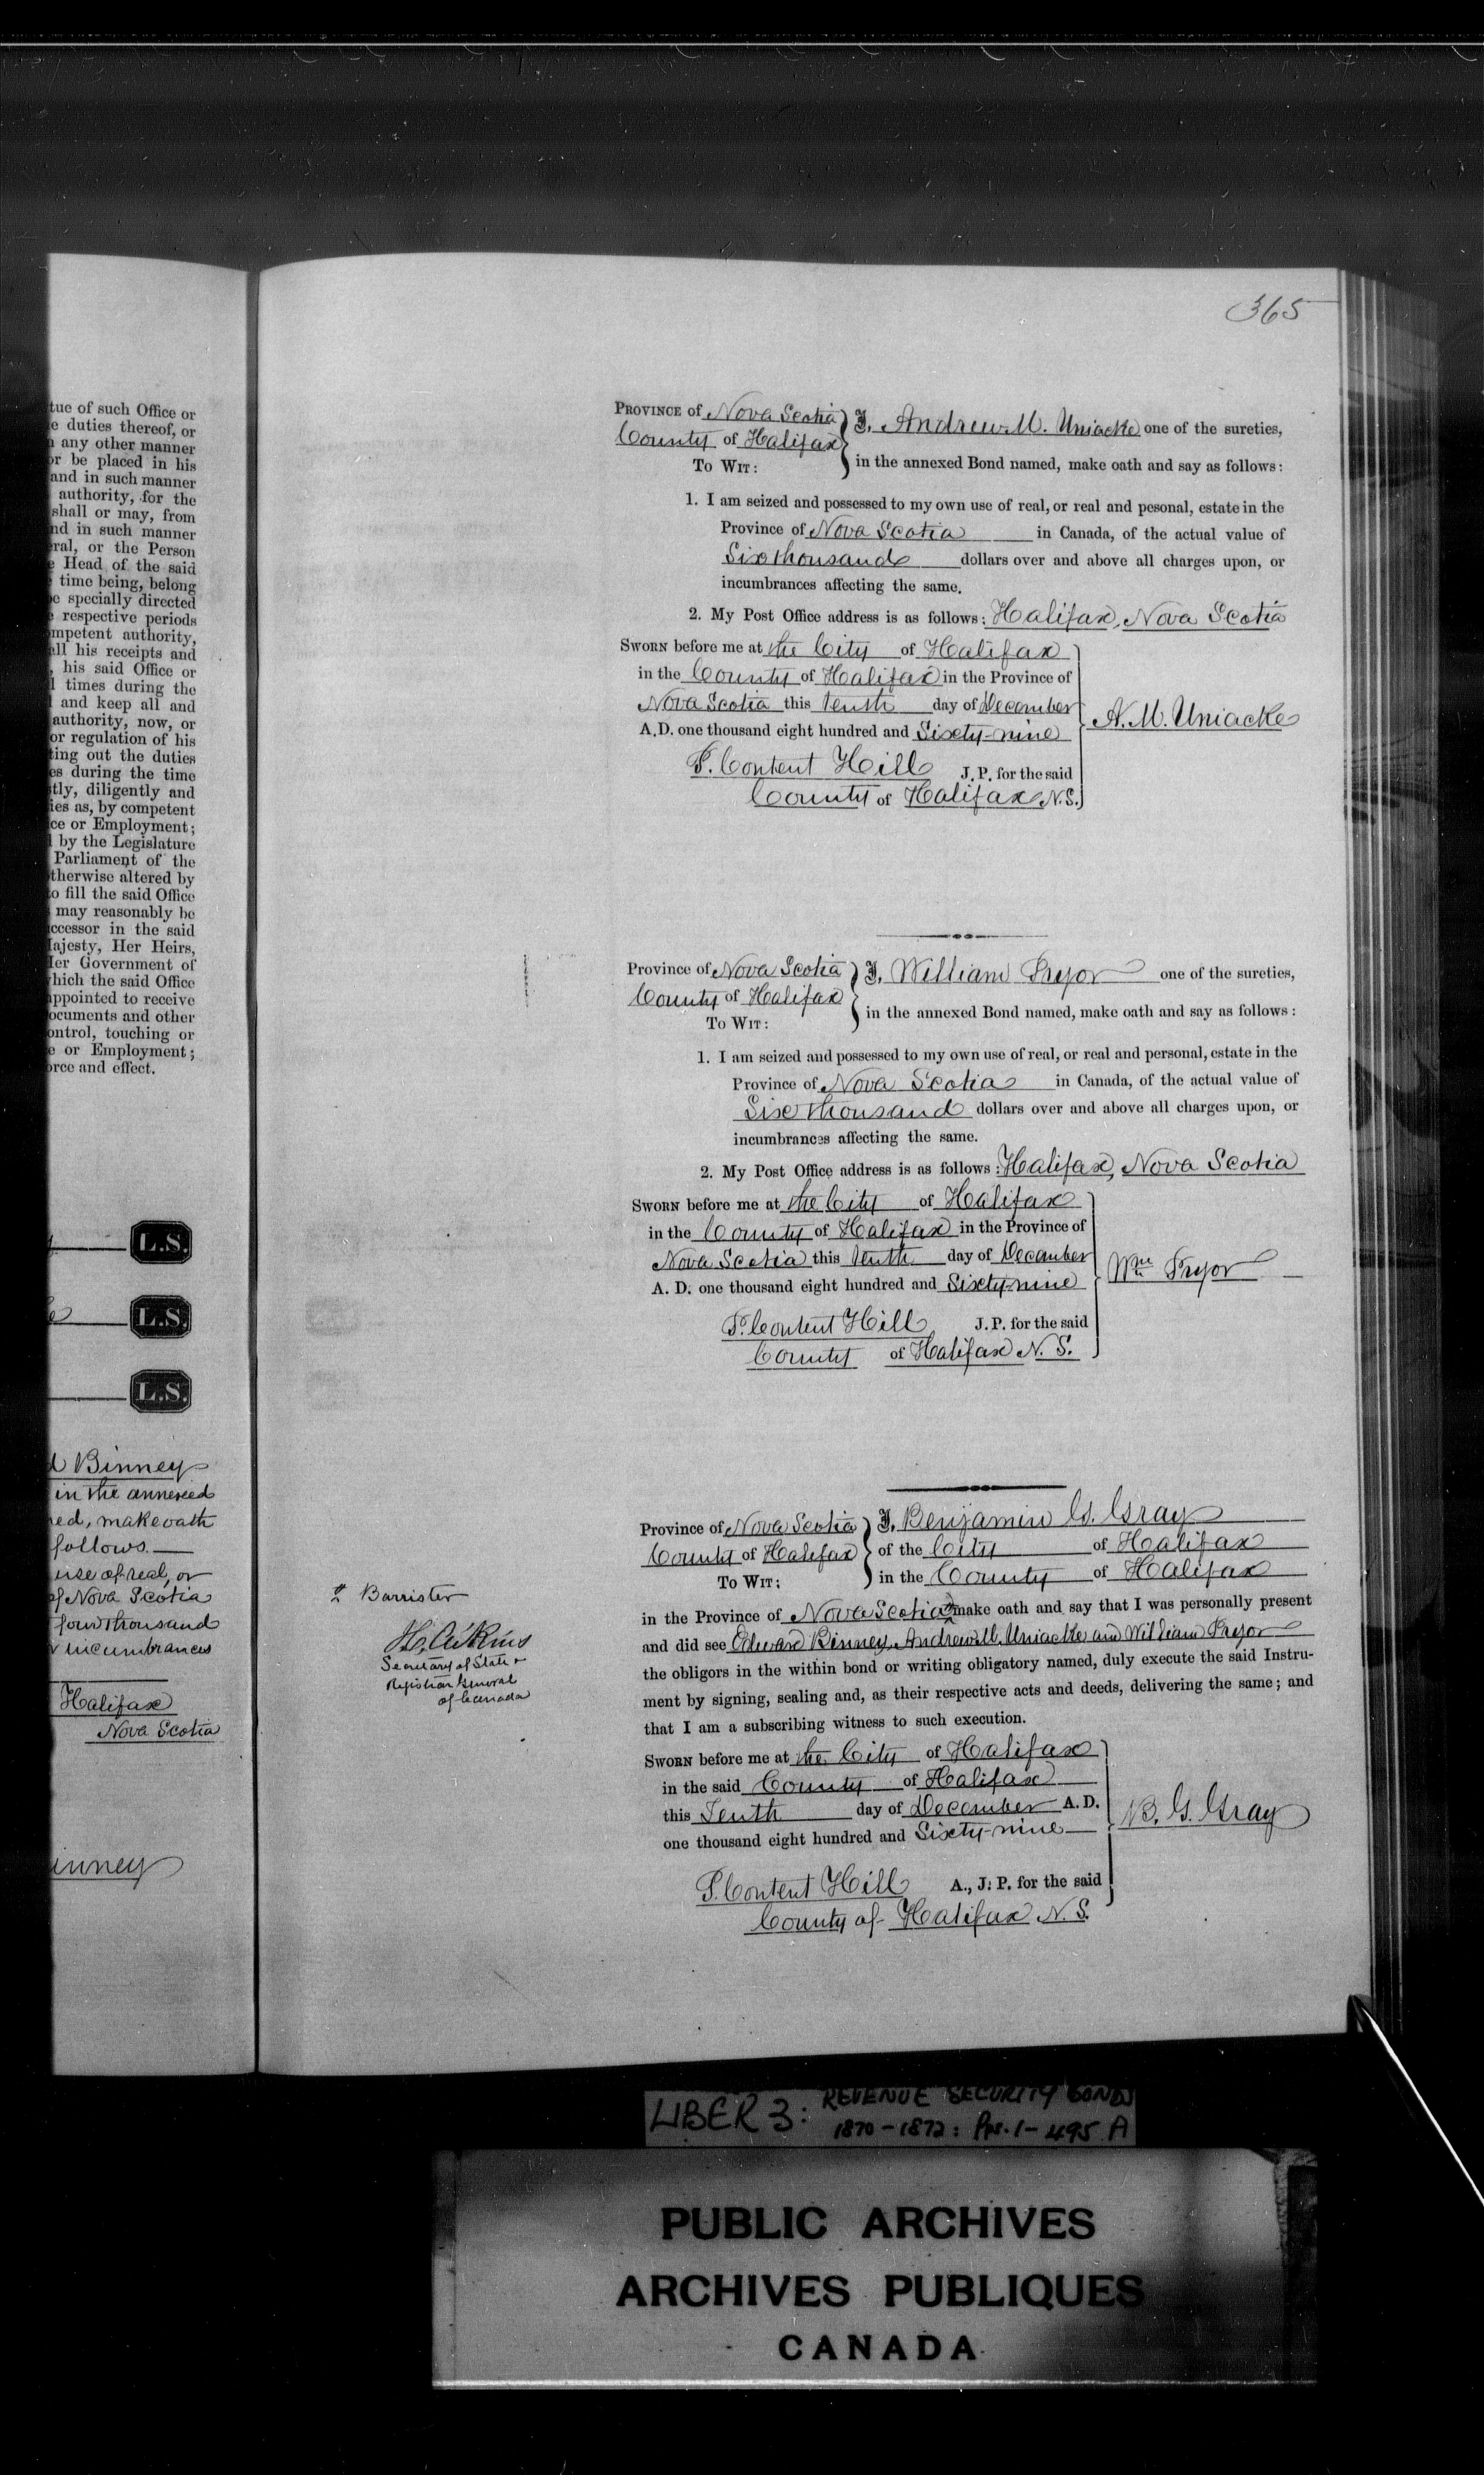 tue of such Office or
e duties thereof, or
any other manner
or be placed in his
and in such manner
authority, for the
shall or may, from
nd in such manner
ral, or the Person
Head of the said
time being, belong
e specially directed
respective periods
mpetent authority,
all his receipts and
, his said Office or
l times during the
and keep all and
authority, now, or
or regulation of his
ting out the duties
es during the time
tly, diligently and
ies as, by competent
ce or Employment;
by the Legislature
Parliament of the
therwise altered by
to fill the said Office
may reasonably be
ccessor in the said
ajesty, Her Heirs,
er Government of
which the said Office
appointed to receive
ocuments and other
ontrol, touching or
e or Employment;
orce and effect.
L.S.
L.S.
L.S.
d Binney
in the annexed
ed, make oath
follows.
use of real, or
of Nova Scotia
four thousand
r incumbrances
Halifax
Nova Scotia
inney
365
PROVINCE of Nova Scotia } I, Andrew M. Uniacke one of the sureties,
County of Halifax
TO WIT: in the annexed Bond named, make oath and say as follows:
1. I am seized and possessed to my own use of real, or real and pesonal, estate in the
Province of Nova Scotia in Canada, of the actual value of
Six thousand dollars over and above all charges upon, or
incumbrances affecting the same.
2. My Post Office address is as follows: Halifax, Nova Scotia
SWORN before me at the City of Halifax
in the County of Halifax in the Province of
Nova Scotia this tenth day of December
A.D. one thousand eight hundred and Sixty-nine
A. M. Uniacke
P. Content Hill J. P. for the said
County of Halifax N.S.
Province of Nova Scotia } I, William Pryor one of the sureties,
County of Halifax
TO WIT: in the annexed Bond named, make oath and say as follows:
1. I am seized and possessed to my own use of real, or real and personal, estate in the
Province of Nova Scotia in Canada, of the actual value of
Six thousand dollars over and above all charges upon, or
incumbrances affecting the same.
2. My Post Office address is as follows: Halifax, Nova Scotia
SWORN before me at the City of Halifax
in the County of Halifax in the Province of
Nova Scotia this tenth day of December
A. D. one thousand eight hundred and Sixty-nine
Wm Pryor
P. Content Hill J. P. for the said
County of Halifax N. S.
Province of Nova Scotia } I, Benjamin G. Gray
County of Halifax } of the City of Halifax
TO WIT: in the County of Halifax
in the Province of Nova Scotia make oath and say that I was personally present
and did see Edward Binney, Andrew M. Uniacke and William Pryor
the obligors in the within bond or writing obligatory named, duly execute the said Instru-
ment by signing, sealing and, as their respective acts and deeds, delivering the same; and
that I am a subscribing witness to such execution.
Barrister
H. Aikins
Secretary of State &
Registrar General
of Canada
SWORN before me at the City of Halifax
in the said County of Halifax
this Tenth day of December A. D.
one thousand eight hundred and Sixty-nine
B. G. Gray
P. Content Hill A., J. P. for the said
County of Halifax N. S.
LIBER 3: REVENUE SECURITY BONDS
1870-1872: Pps. 1-495 A
PUBLIC ARCHIVES
ARCHIVES PUBLIQUES
CANADA